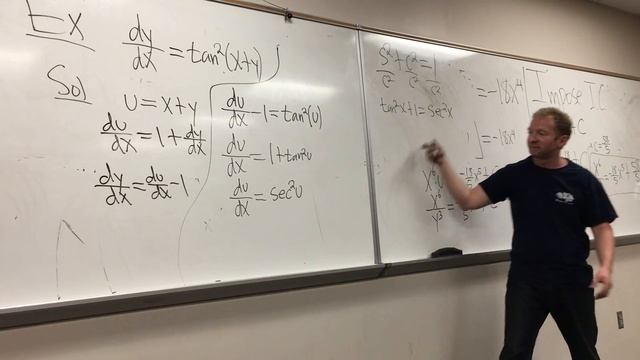 Ex dy/dx = tan²(x+y)
Sol
u = x+y
du/dx = 1 + dy/dx
dy/dx = du/dx - 1
du/dx - 1 = tan²(u)
du/dx = 1 + tan²u
du/dx = sec²u
s²/c² + c²/c² = 1/c²
tan²x + 1 = sec²x
= -18x⁴
] = -18x⁴
Impose IC